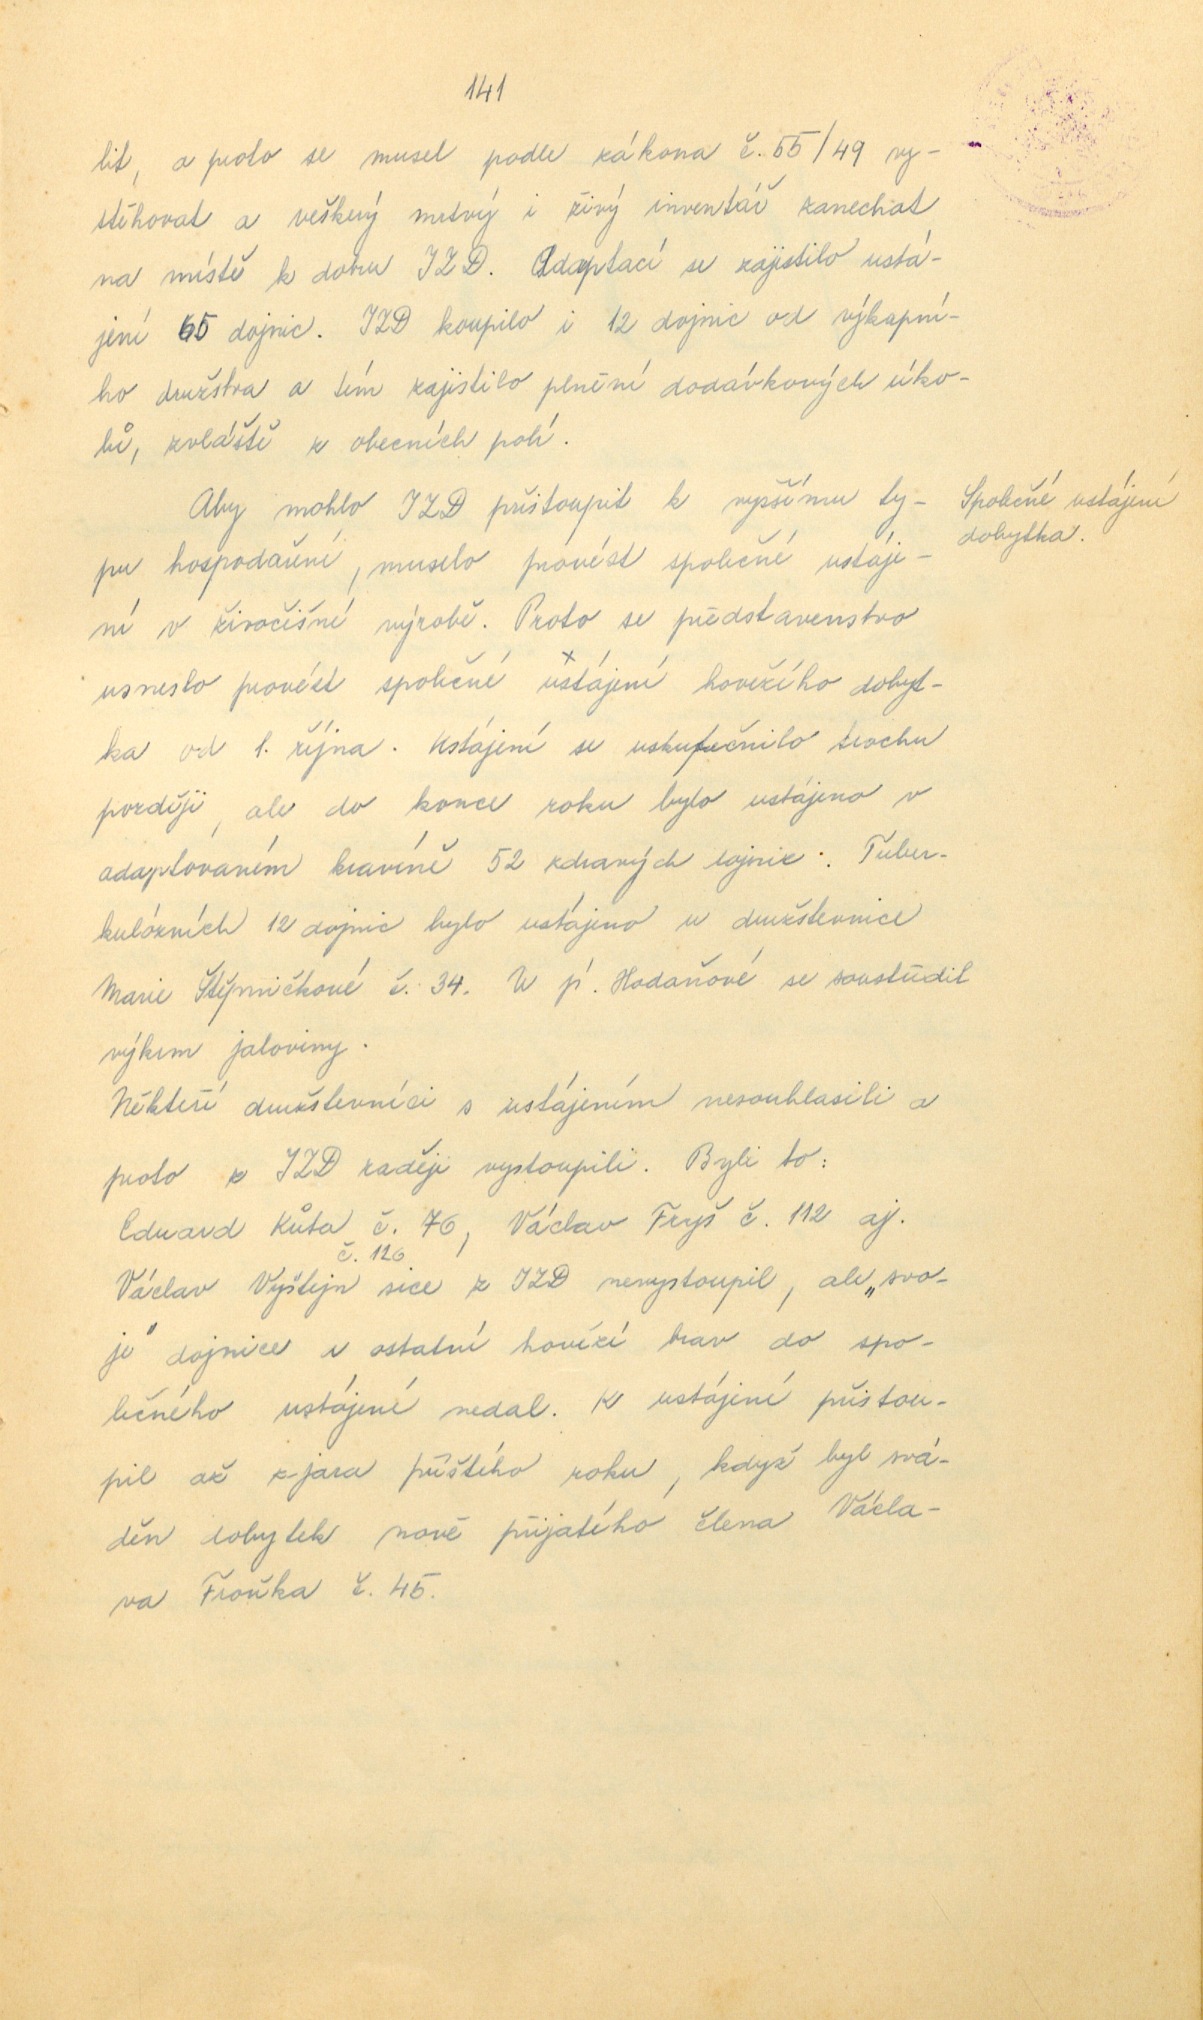 141
lit, a proto se musel podle zákona č. 55/49 vy-
stěhovat a veškerý mrtvý i živý inventář zanechat
na místě k dobru JZD. Adaptací se zajistilo ustá-
jení 65 dojnic. JZD koupilo i 12 dojnic od výkupní-
ho družstva a tím zajistilo plnění dodávkových úko-
lů, zvláště z obecních polí.
Aby mohlo JZD přistoupit k vyššímu ty-
Společné ustájení
dobytka.
pu hospodaření, muselo provést společné ustáje-
ní v živočišné výrobě. Proto se představenstvo
usneslo provést společné ustájení hovězího dobyt-
ka od 1. října. Ustájení se uskutečnilo trochu
později, ale do konce roku bylo ustájeno v
adaptovaném kravíně 52 zdravých dojnic. Tuber-
kulózních 12 dojnic bylo ustájeno u družstevnice
Marie Štěpničkové č. 34. U p. Hodaňové se soustředil
výkrm jaloviny.
Někteří družstevníci s ustájením nesouhlasili a
proto z JZD raději vystoupili. Byli to:
Eduard Kůta č. 76, Václav Fryš č. 112 aj.
č. 126
Václav Vyštejn sice z JZD nevystoupil, ale „svo-
je" dojnice a ostatní hovězí brav do spo-
lečného ustájené nedal. K ustájení přistou-
pil až z jara příštího roku, když byl svá-
děn dobytek nově přijatého člena Václa-
va Froňka č. 45.